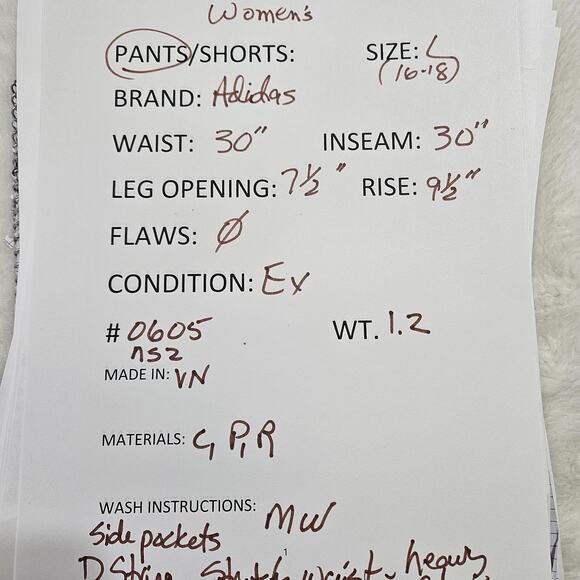 Women's
PANTS/SHORTS: SIZE: L
(16-18)
BRAND: Adidas
WAIST: 30" INSEAM: 30"
LEG OPENING: 7½" RISE: 9½"
FLAWS: Ø
CONDITION: Ex
# 0605 WT. 1.2
ns2
MADE IN: VN
MATERIALS: C, P, R
WASH INSTRUCTIONS: MW
Side pockets
1
D String Stretch Waist, heavy